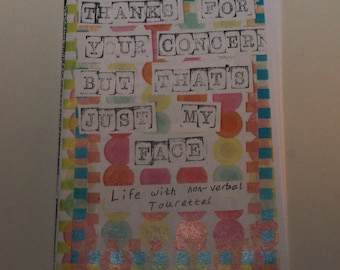 THANKS FOR
YOUR CONCERN
BUT THAT'S
JUST MY
FACE
Life with non-verbal
Tourettes